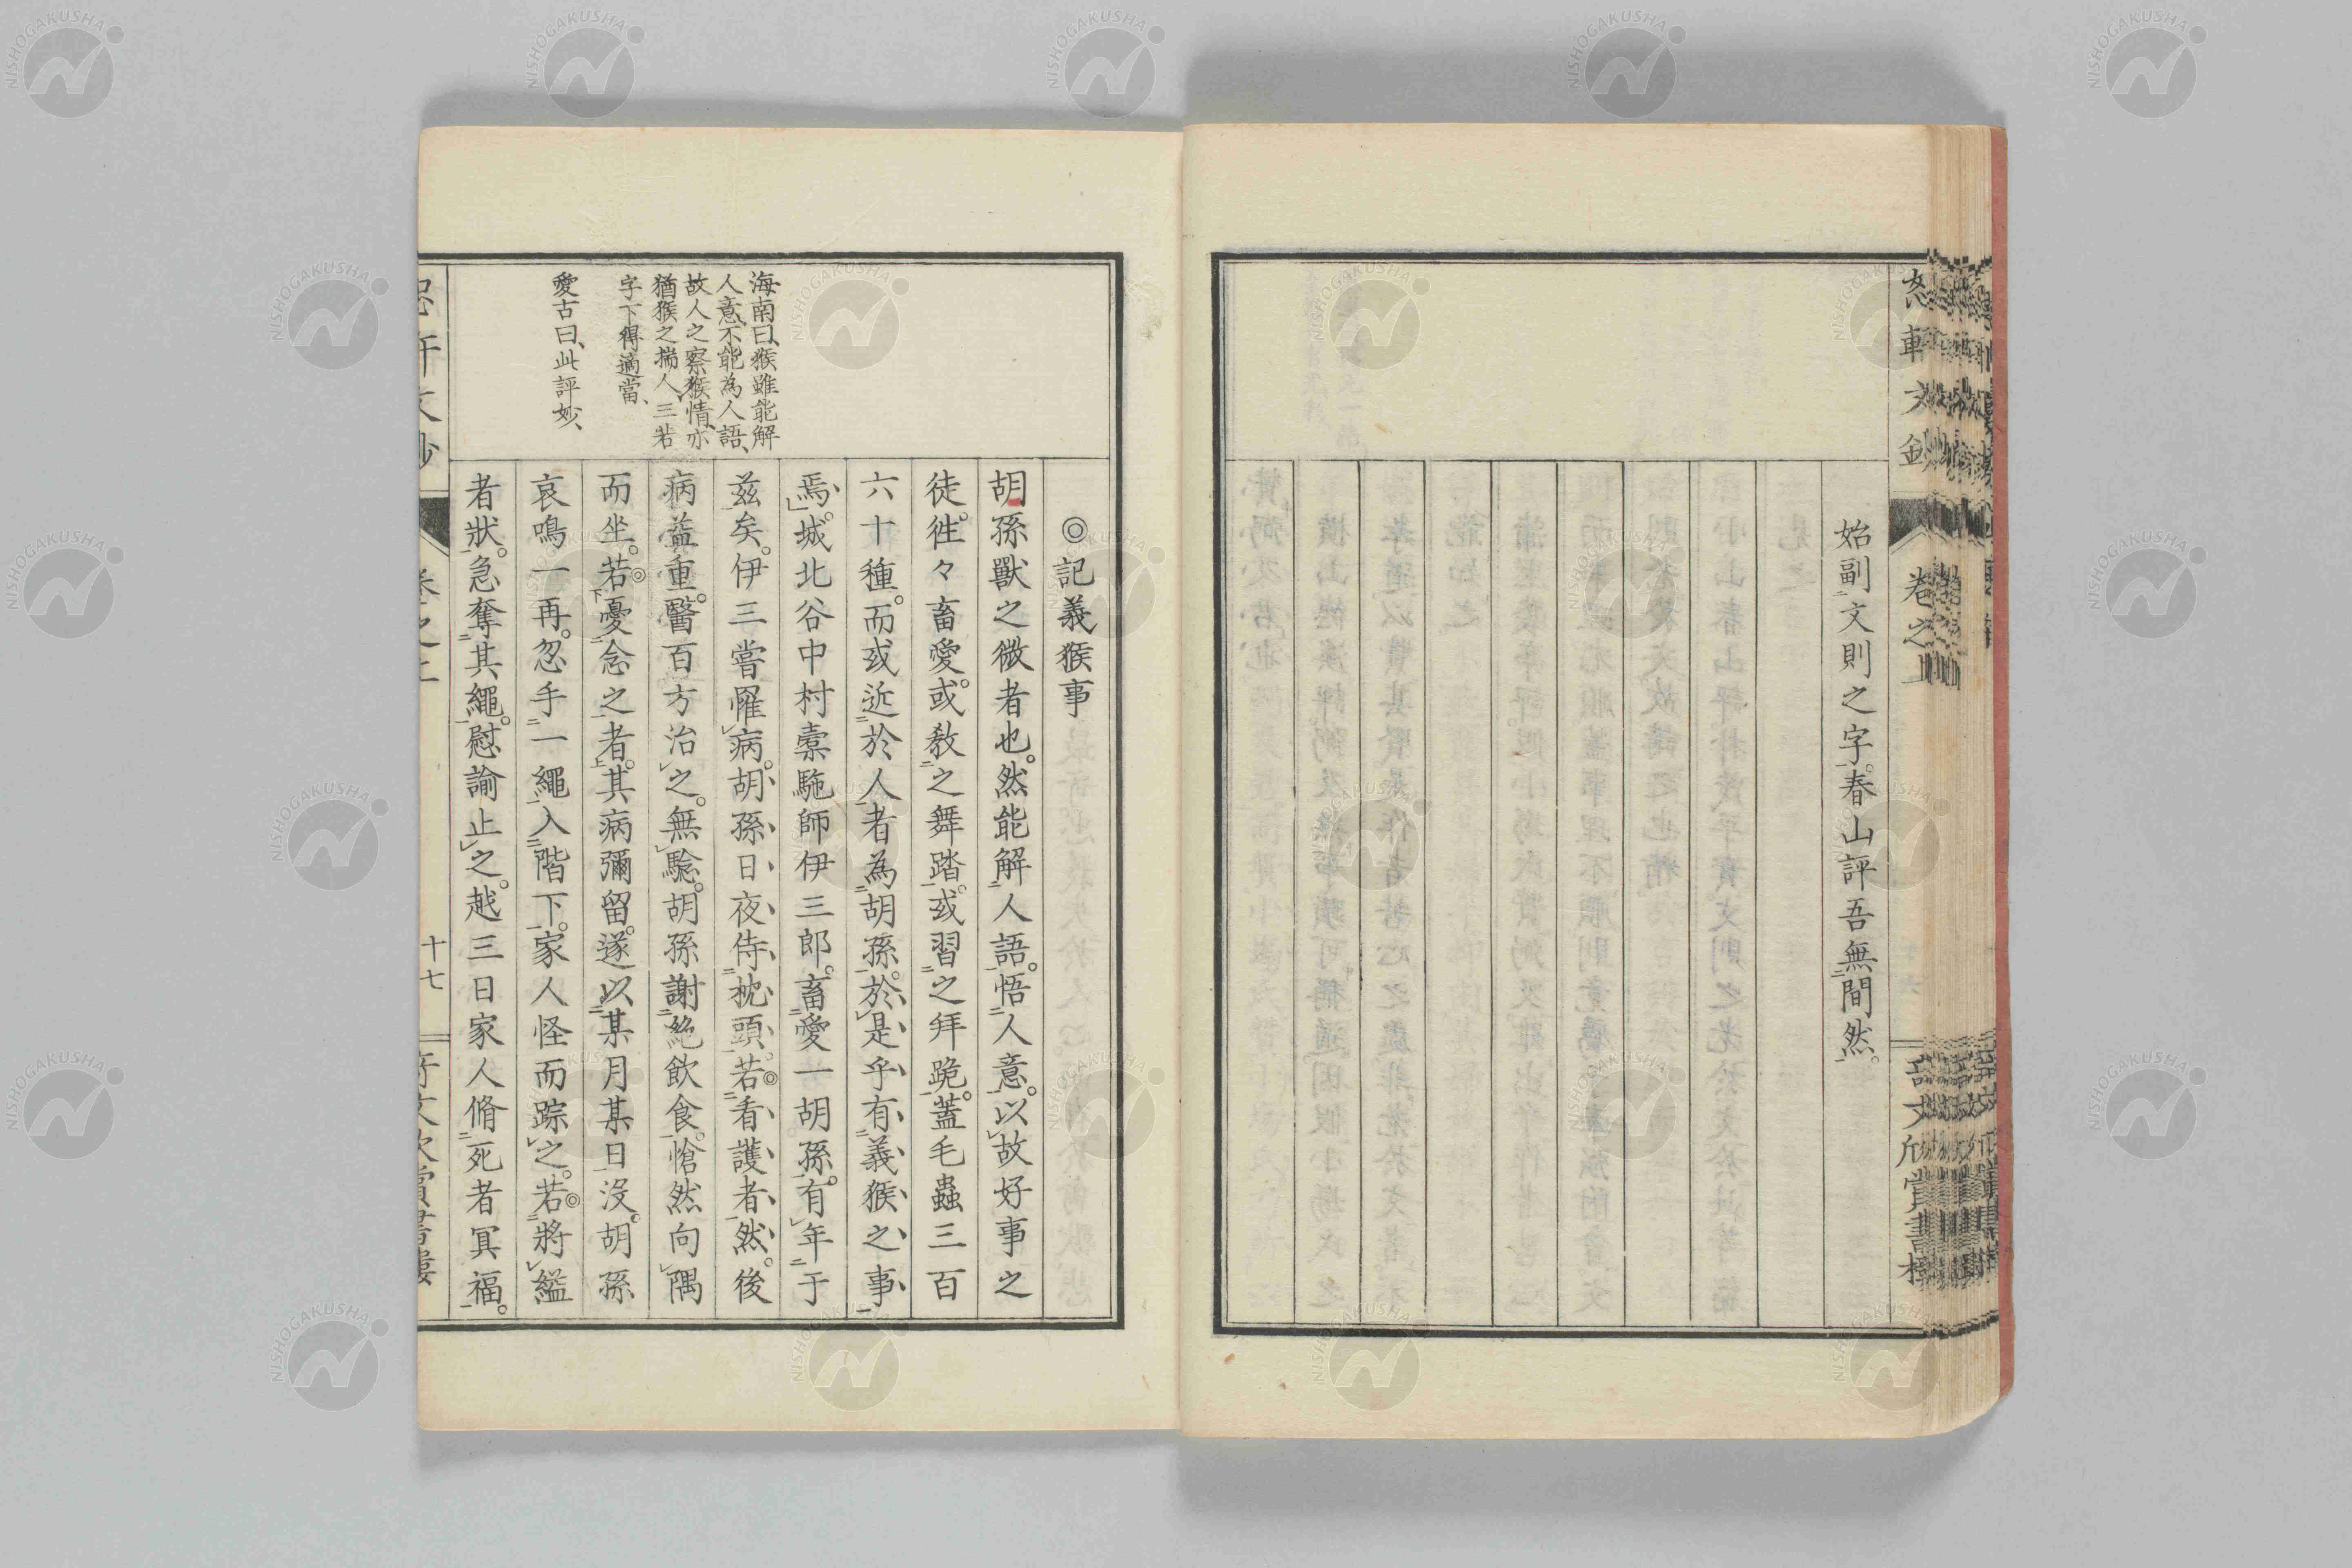 始副文則之字。春山評吾無間然。
恕軒文鈔
卷之上
奇文欣賞書樓
海南曰、猴雖能解
人意、不能為人語、
故人之察猴情、亦
猶猴之揣人、三若
字下得適當、
愛古曰、此評妙、
◎記義猴事
胡孫獸之微者也。然能解人語。悟人意。以故好事之
徒。徃々畜愛。或敎之舞踏。或習之拜跪。蓋毛蟲三百
六十種。而或近於人者為胡孫。於是乎有義猴之事
焉。城北谷中村橐駞師伊三郎。畜愛一胡孫。有年于
茲矣。伊三嘗罹病。胡孫日夜侍枕頭。若看護者然。後
病益重。醫百方治之。無驗。胡孫謝絶飮食。愴然向隅
而坐。若憂念之者。其病彌留。遂以某月某日沒。胡孫
哀鳴一再。忽手一繩入階下。家人怪而踪之。若將縊
者狀。急奪其繩。慰諭止之。越三日家人脩死者冥福。
十七
NISHOGAKUSHA